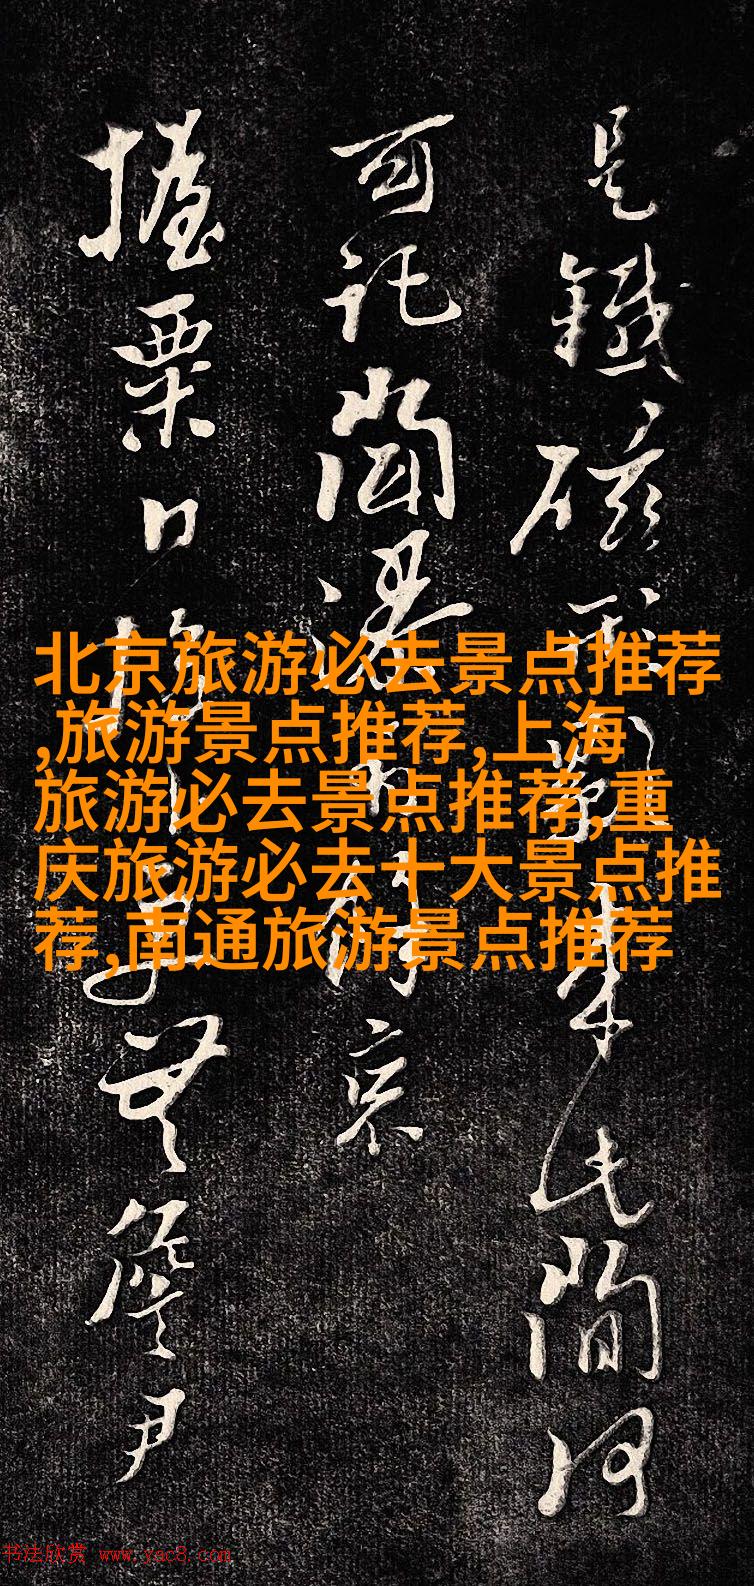 是鐵磁來民間何
可託哀
握粟無詹尹
北京旅游必去景点推荐
,旅游景点推荐,上海
旅游必去景点推荐,重
庆旅游必去十大景点推
荐,南通旅游景点推荐
书法欣赏 www.yac8.com